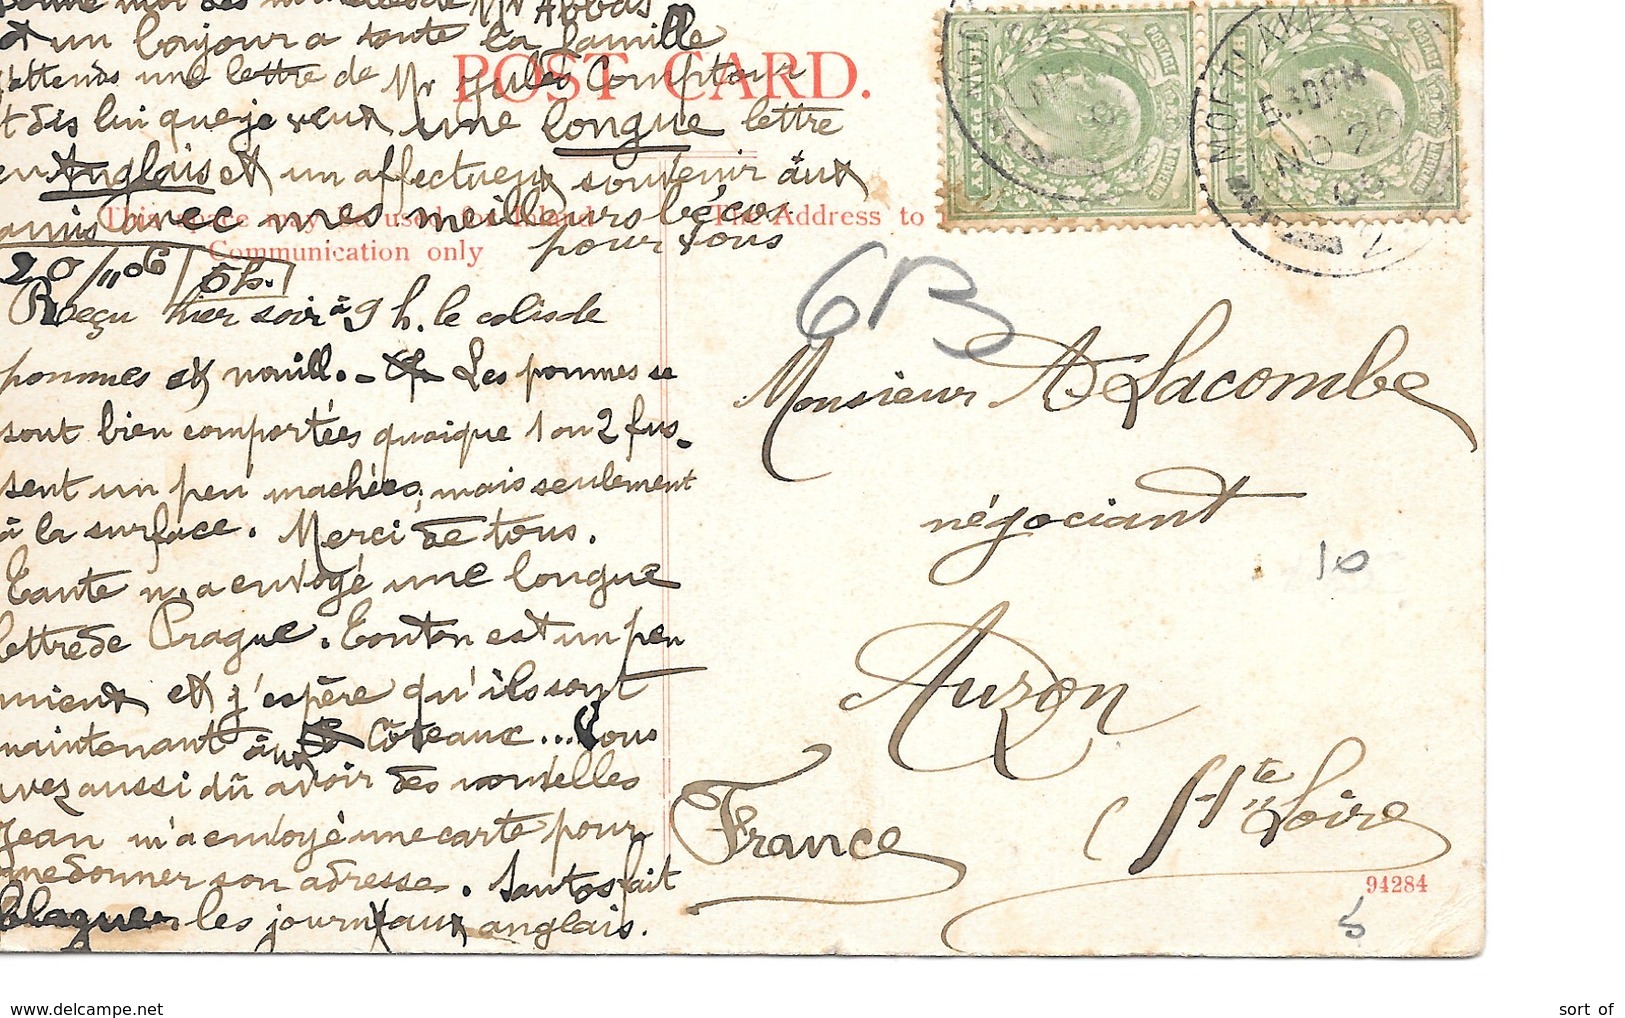 donne moi des nouvelles de Mr Abbas
et un bonjour a toute la famille
J'attends une lettre de Mr Jules Comptour
et dis lui que je veux une longue lettre
en Anglais et un affectueux souvenir aux
amis avec mes meilleurs bécos
pour vous
20/11 06 5h.
Reçu hier soir à 9 h. le colis de
pommes et nouill. - Les pommes se
sont bien comportées quoique 1 ou 2 fus-
sent un peu machées, mais seulement
à la surface. Merci de tous.
Tante m'a envoyé une longue
lettre de Prague. Tonton est un peu
mieux et j'espère qu'ils sont
maintenant aux Côteaux... Vous
avez aussi dû avoir des nouvelles
Jean m'a envoyé une carte pour
me donner son adresse. Santos fait
blaguer les journaux anglais.
POST CARD.
This space may be used for Inland
Communication only
The Address to
POSTAGE
POSTAGE
5.30PM
NO 20
06
6B
Monsieur A Lacombe
négociant
10
Auzon
Hte Loire
France
94284
5
www.delcampe.net
sort of